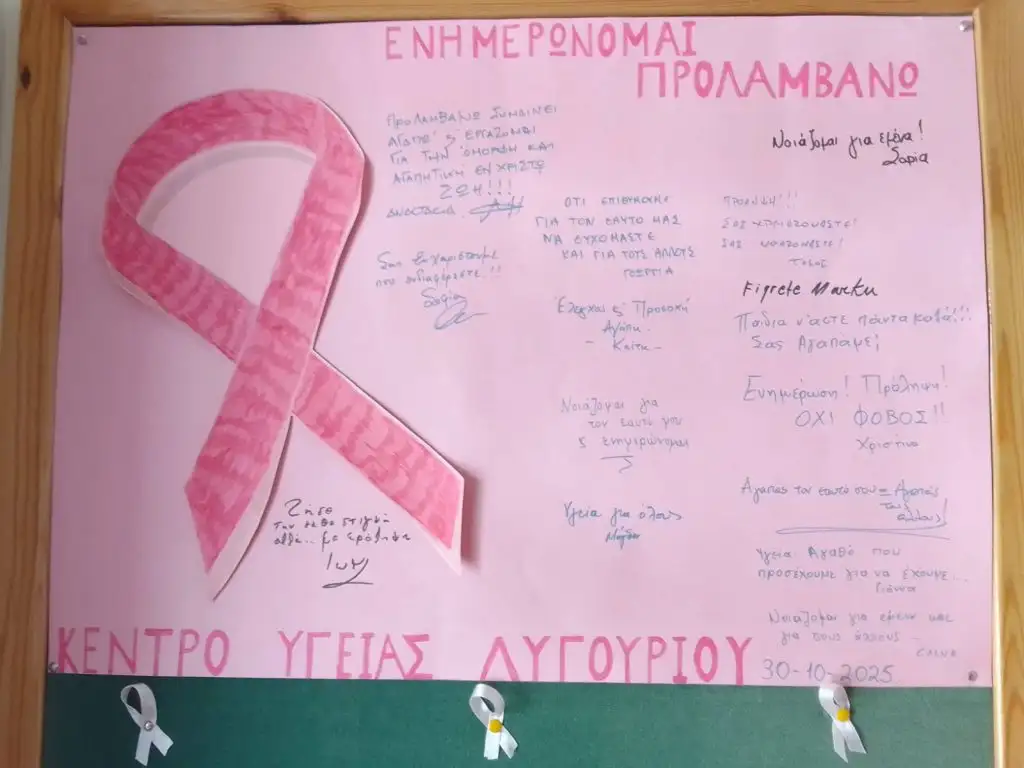 ΕΝΗΜΕΡΩΝΟΜΑΙ
ΠΡΟΛΑΜΒΑΝΩ
ΠΡΟΛΑΜΒΑΝΩ ΣΥΝΔΙΝΕΙ
ΑΓΑΠΩ ς ΕΡΓΑΖΟΜΑΙ
ΓΙΑ ΤΗΝ ΟΜΟΡΦΗ ΚΑΙ
ΑΓΑΠΗΤΙΚΗ ΕΝ ΧΡΙΣΤΩ
ΖΩΗ!!!
ΑΝΑΣΤΑΣΙΑ
Σας Ευχαριστούμε
που ενδιαφέρεστε!!
Σοφία
Ζήσε
την κάθε στιγμή
αλλά... με πρόληψη
ΟΤΙ ΕΠΙΘΥΜΟΥΜΕ
ΓΙΑ ΤΟΝ ΕΑΥΤΟ ΜΑΣ
ΝΑ ΕΥΧΟΜΑΣΤΕ
ΚΑΙ ΓΙΑ ΤΟΥΣ ΑΛΛΟΥΣ
ΓΕΩΡΓΙΑ
Έλεγχος ς Προσοχή
Αγάπη.
- Καίτη -
Νοιάζομαι για
τον εαυτό μου
ς ενημερώνομαι
Υγεία για όλους
Μάγδα
Νοιάζομαι για εμένα!
Σοφία
ΠΡΟΛΗΨΗ!!!
ΣΑΣ
ΣΑΣ ΝΟΙΑΖΟΜΑΣΤΕ!
Figrete Marku
Παιδιά ν'άστε πάντα καλά!!!
Σας Αγαπάμε;
Ενημέρωση! Πρόληψη!
ΟΧΙ ΦΟΒΟΣ!!
Χριστίνα
Αγαπάς τον εαυτό σου = Αγαπάς
τους
άλλους!
Υγεία Αγαθό που
προσέχουμε για να έχουμε...
Γιάννα
Νοιάζομαι για εμένα και
για τους άλλους -
ΕΛΕΝΑ
ΚΕΝΤΡΟ ΥΓΕΙΑΣ ΛΥΓΟΥΡΙΟΥ 30-10-2025